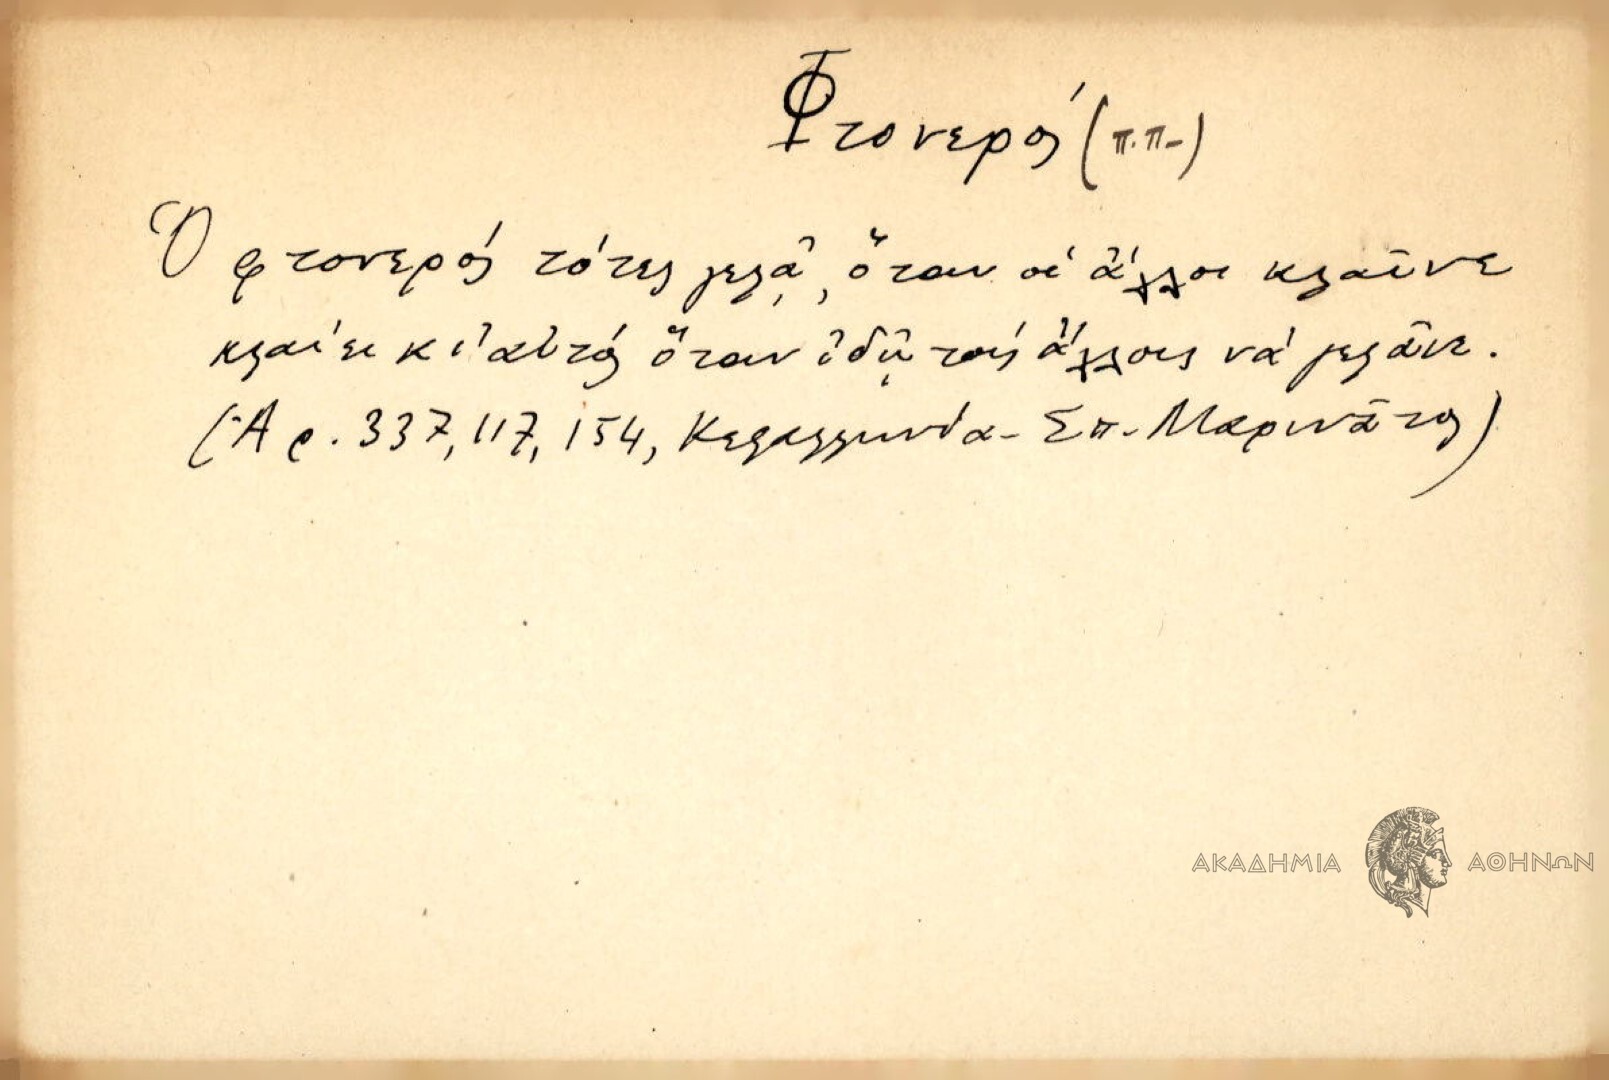 Φτονερός (π.π-)
Ὁ φτονερός τότες γελᾷ, ὅταν οἱ ἄλλοι κλαῖνε
κλαίει κι' αὐτός ὅταν ἰδῇ τούς ἄλλους νά γελᾶνε.
(Ἀρ. 337, 117, 154, Κεφαλληνία - Σπ. Μαρινᾶτος)
ΑΚΑΔΗΜΙΑ ΑΘΗΝΩΝ